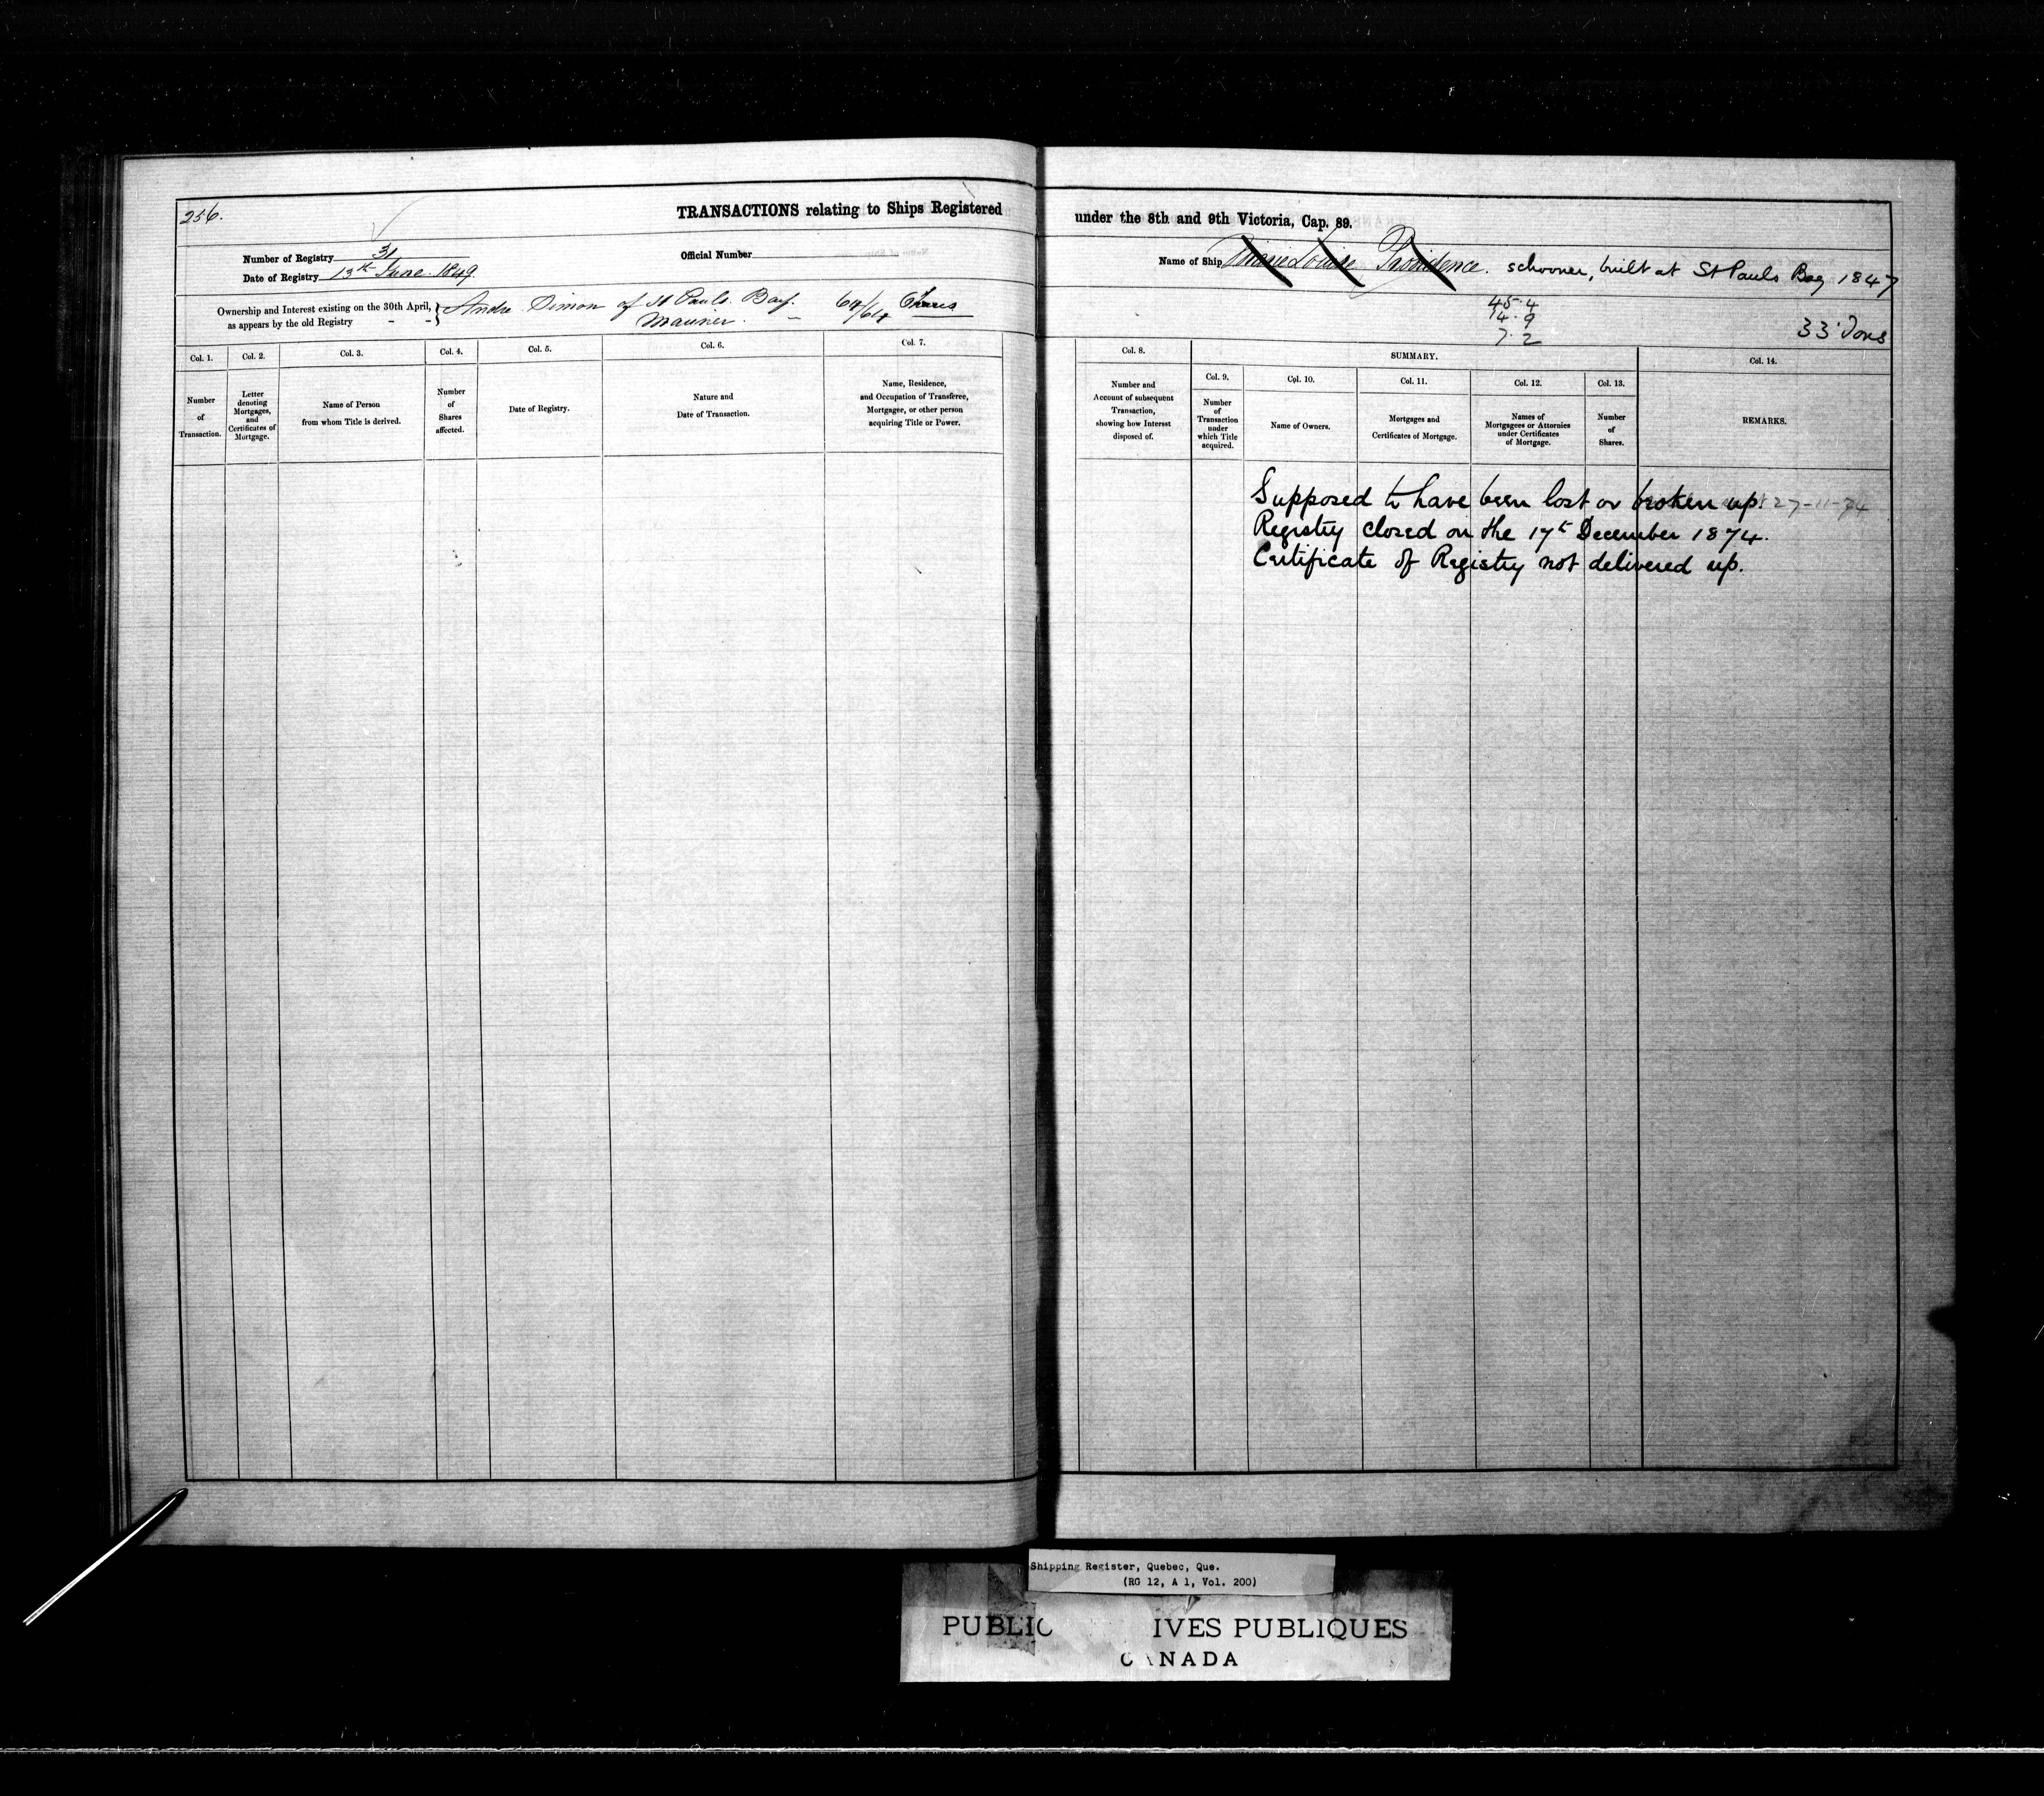 256.
TRANSACTIONS relating to Ships Registered
Number of Registry 31
Official Number
Date of Registry 13th June 1849
Ownership and Interest existing on the 30th April, as appears by the old Registry - - } Andre Simon of St Pauls Bay. 64/64 Shares
Mariner. -
Col. 1. Col. 2. Col. 3. Col. 4. Col. 5. Col. 6. Col. 7.
Number of Transaction.
Letter denoting Mortgages, and Certificates of Mortgage.
Name of Person from whom Title is derived.
Number of Shares affected.
Date of Registry.
Nature and Date of Transaction.
Name, Residence, and Occupation of Transferee, Mortgagee, or other person acquiring Title or Power.
under the 8th and 9th Victoria, Cap. 89.
Name of Ship Marie Louise Providence. schooner, built at St Pauls Bay 1847
45.4
14.9
7.2
33 Tons
Col. 8. SUMMARY. Col. 14.
Col. 9. Col. 10. Col. 11. Col. 12. Col. 13.
Number and Account of subsequent Transaction, showing how Interest disposed of.
Number of Transaction under which Title acquired.
Name of Owners.
Mortgages and Certificates of Mortgage.
Names of Mortgagees or Attornies under Certificates of Mortgage.
Number of Shares.
REMARKS.
Supposed to have been lost or broken up. 27-11-74
Registry closed on the 17th December 1874.
Certificate of Registry not delivered up.
Shipping Register, Quebec, Que.
(RG 12, A 1, Vol. 200)
PUBLIC IVES PUBLIQUES
CANADA